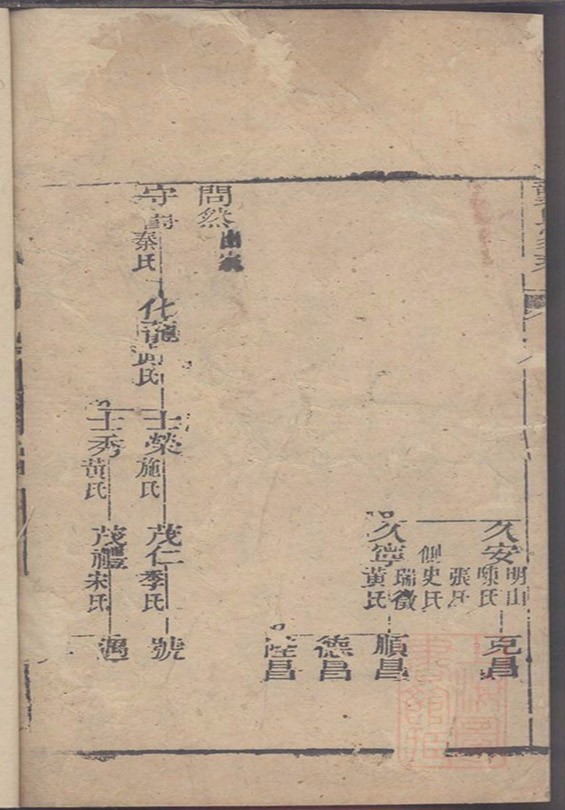 久安
明山
陳氏
張氏
側史氏
克昌
久寧
瑞徵
黃氏
順昌
德昌
陞昌
問然
出家
守
秦氏
化龍
氏
士榮
施氏
茂仁
季氏
號
士秀
黃氏
茂禮
宋氏
遇